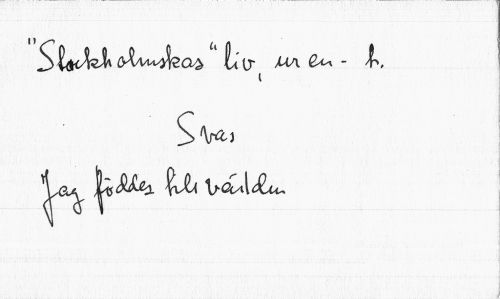 "Stockholmskas" liv, ur en - h.
Svas
Jag föddes till världen